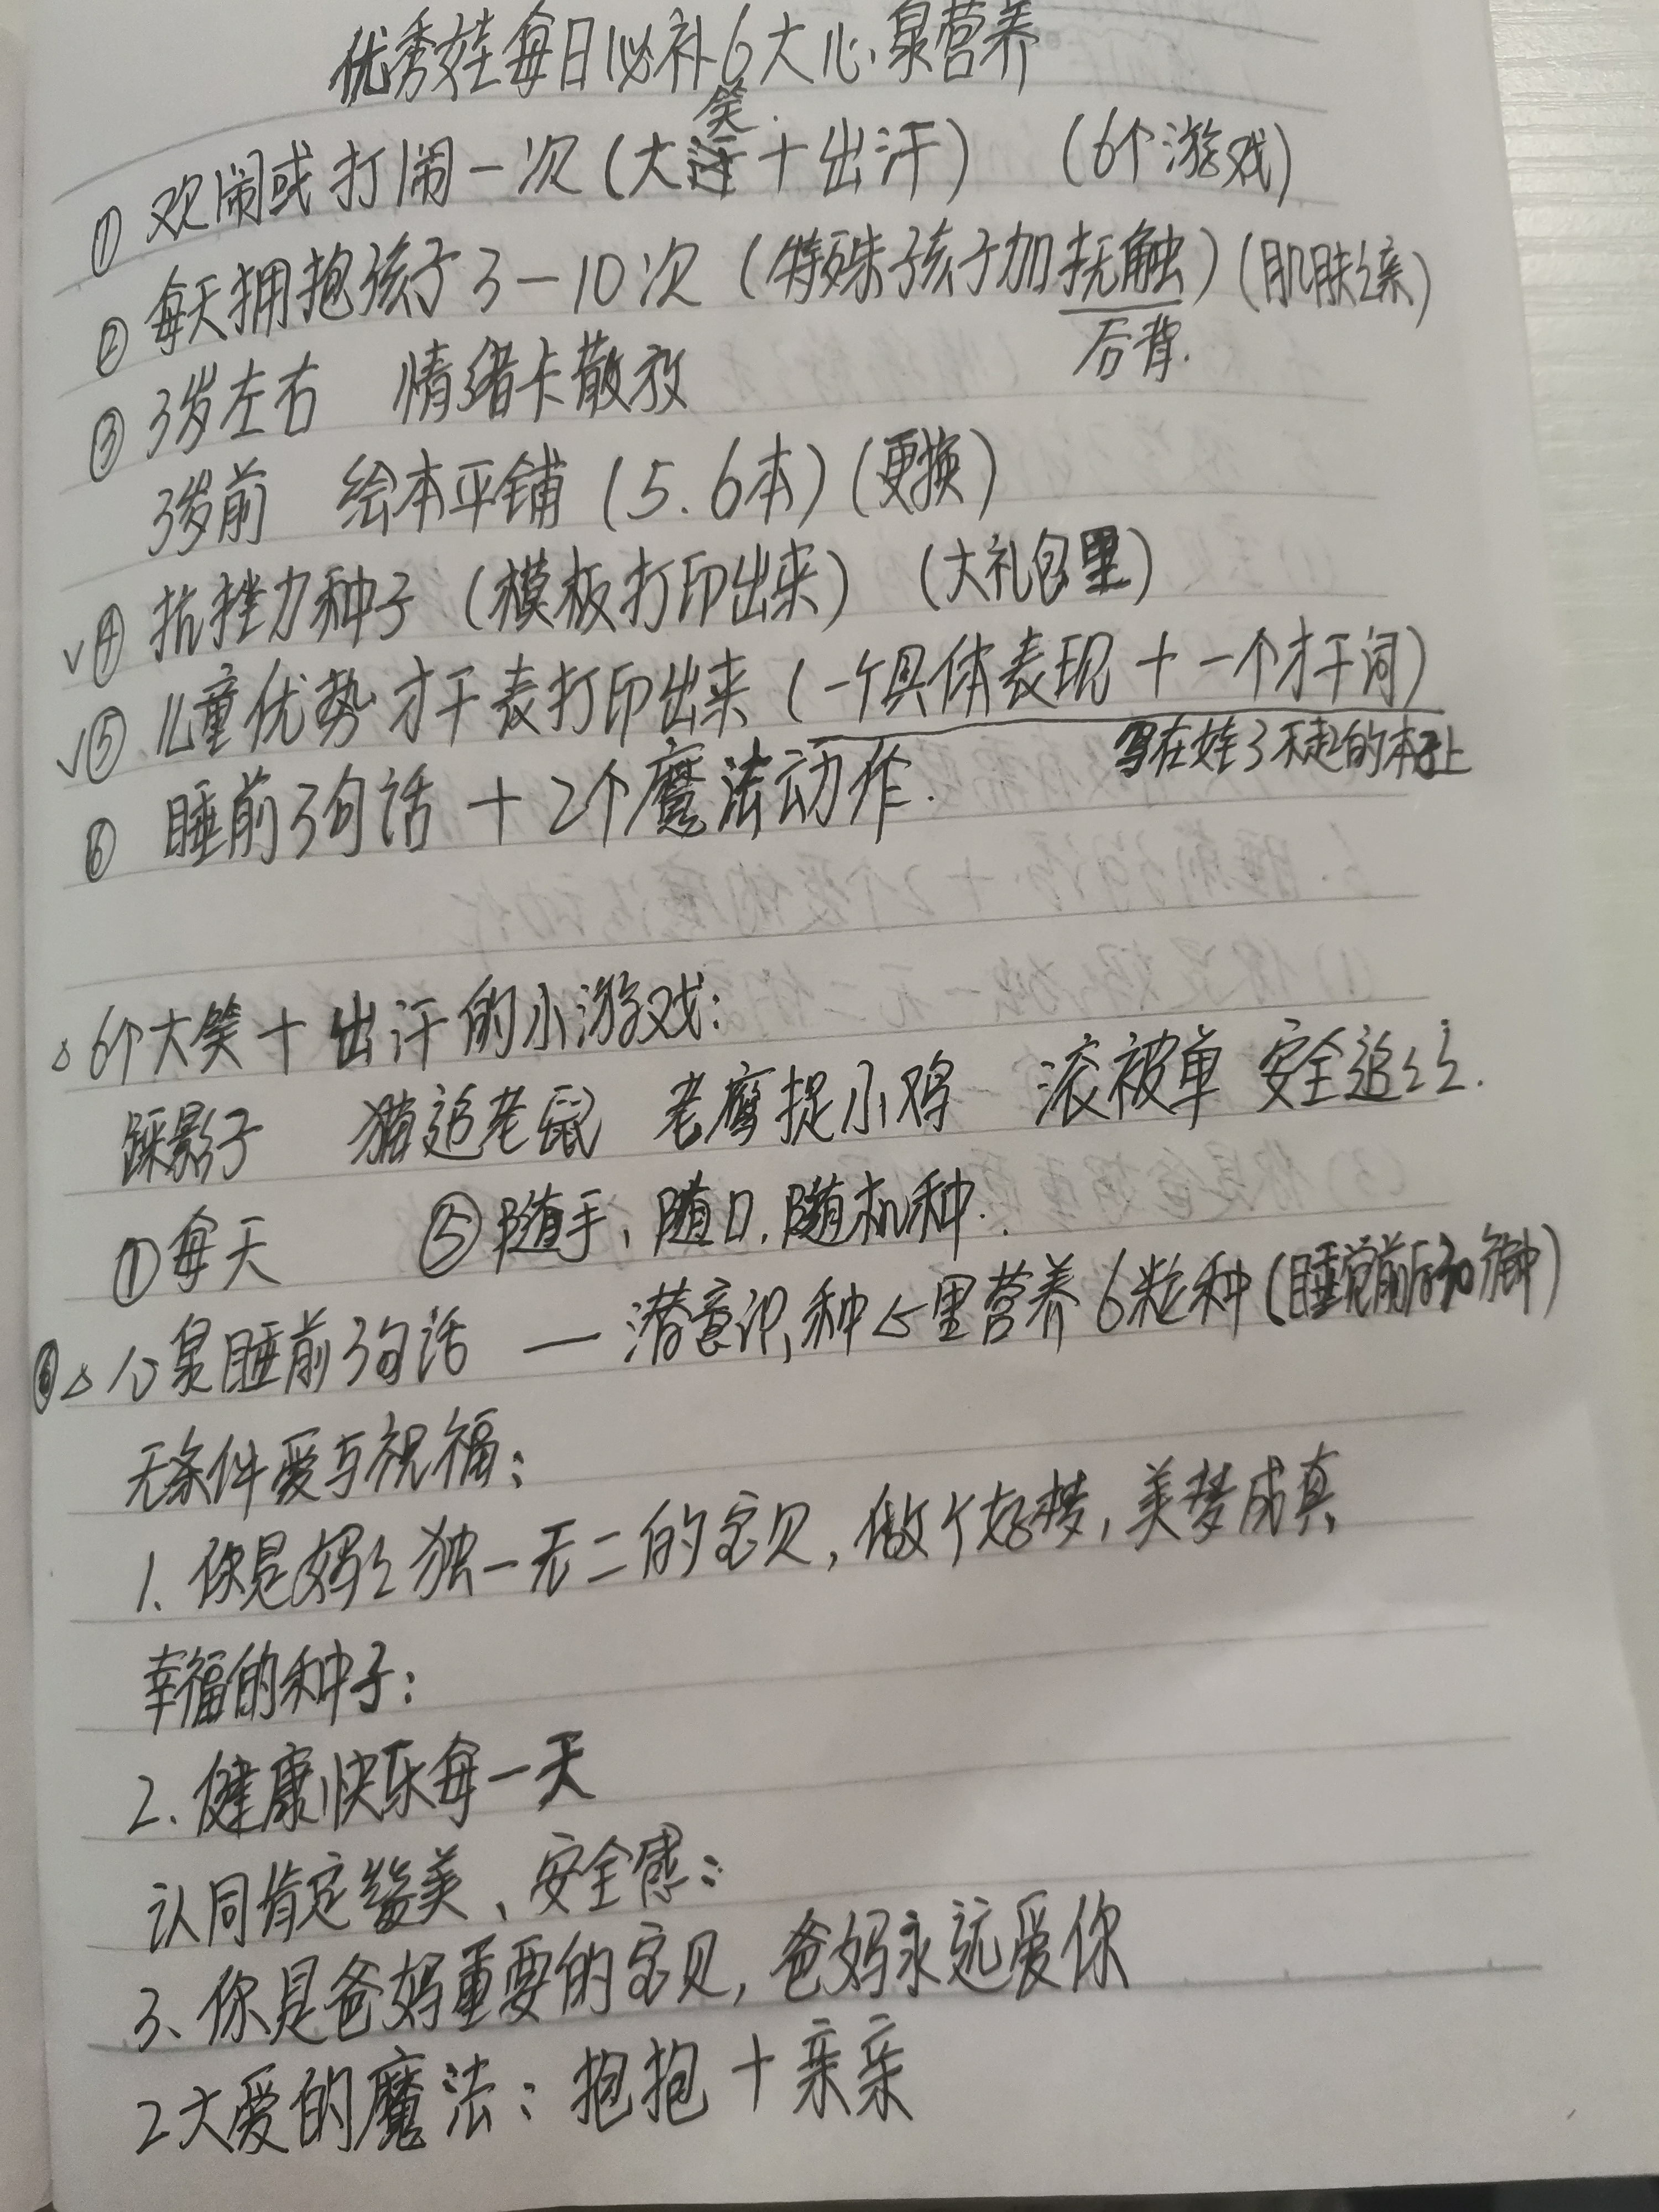 优秀娃每日必补6大心泉营养
① 欢闹或打闹一次（大笑＋出汗） （6个游戏）
② 每天拥抱孩子3—10次（特殊孩子加抚触）（肌肤之亲）
后背.
③ 3岁左右 情绪卡散放
3岁前 绘本平铺（5.6本）（更换）
√④ 抗挫力种子（模板打印出来） （大礼包里）
√⑤ 儿童优势才干表打印出来（一个具体表现＋一个才干词）
写在娃了不起的本子上
⑥ 睡前3句话＋2个魔法动作.
△6个大笑＋出汗的小游戏：
踩影子 猫追老鼠 老鹰捉小鸡 滚被单 安全追
①每天 ⑤随手、随口.随机种.
⑥△心泉睡前3句话 — 潜意识,种心里营养6粒种（睡觉前后30分钟）
无条件爱与祝福：
1、你是妈妈独一无二的宝贝，做个好梦，美梦成真
幸福的种子：
2.健康快乐每一天
认同肯定赞美、安全感：
3、你是爸妈重要的宝贝，爸妈永远爱你
2大爱的魔法：抱抱＋亲亲